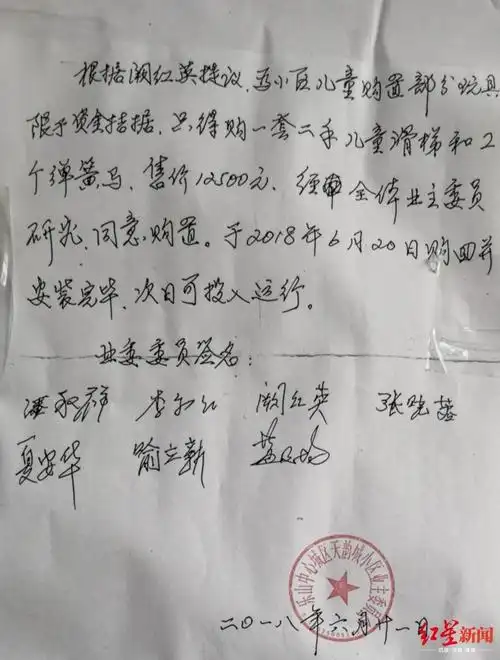 根据阙红英提议,为小区儿童购置部分玩具
限于资金拮据,只得购一套二手儿童滑梯和2
个弹簧马,售价12500元,经 全体业主委员
研究,同意购置。于2018年6月20日购回并
安装完毕,次日可投入运行。
业委委员签名:
阙红英
夏安华 喻立新
乐山中心城区天韵城小区业主委员会
二〇一八年六月廿一日
红星新闻